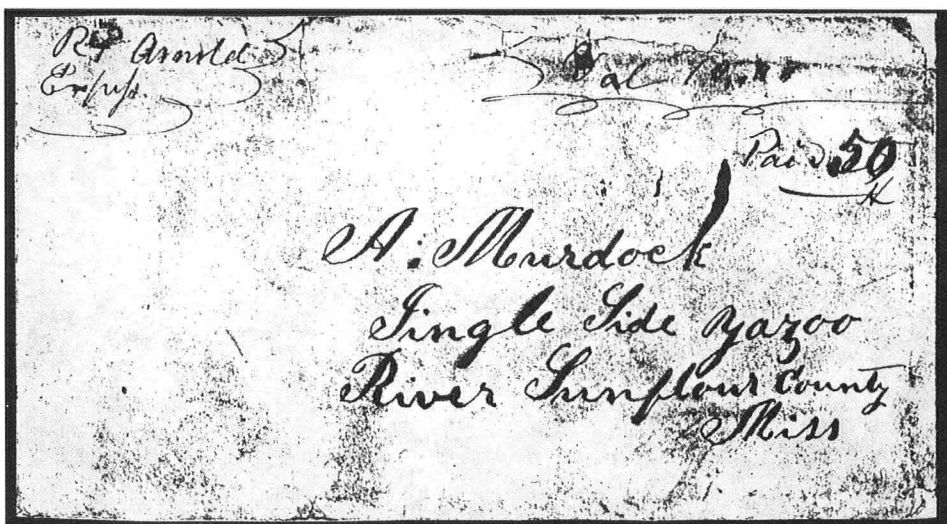 Arnold
Val
Paid 50
A. Murdock
Jingle Side Yazoo
River Sunflour County
Miss